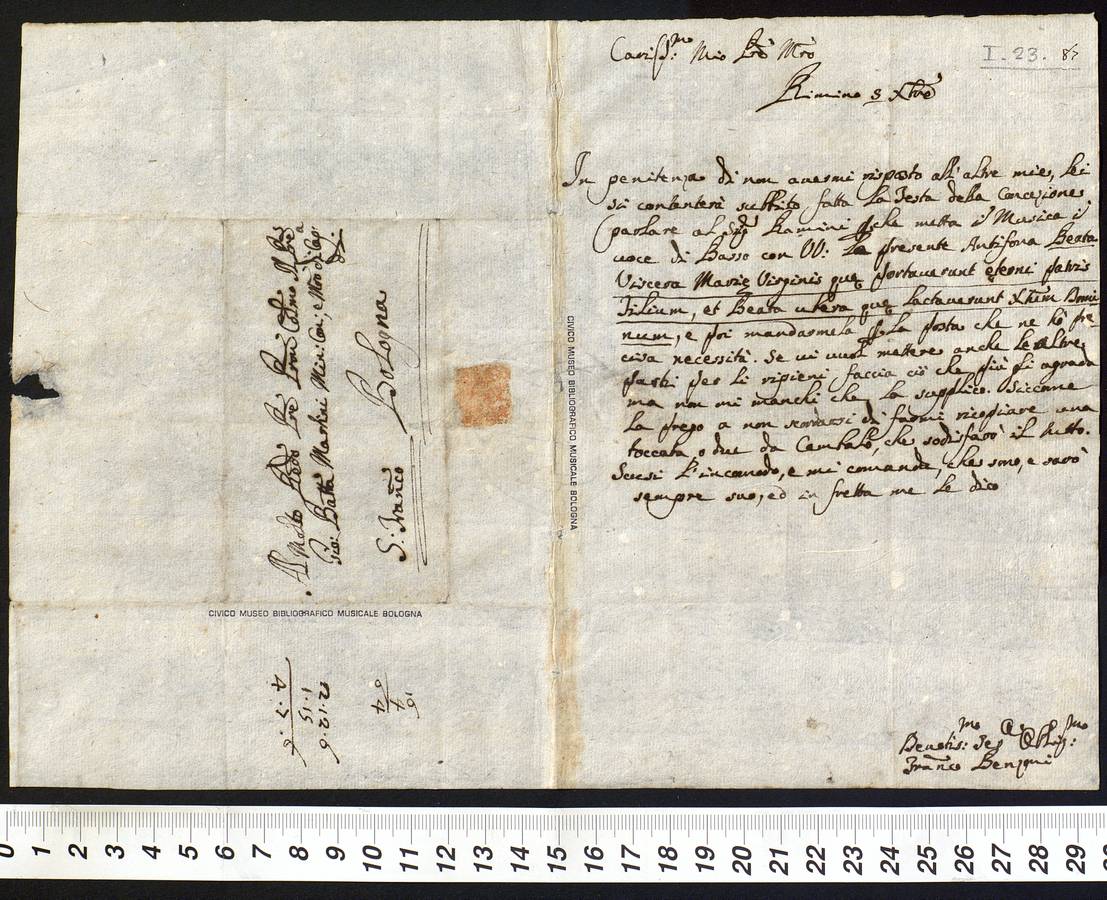 Cariss:mo Mio Pre Mro
I. 23. 87
Rimino 3 Xbre
In penitenza di non avermi risposto all'altre mie, lei
si contenterà subbito fatta la Festa della Concezione
parlare al Sigr Ramini pche metta in Musica à
voce di Basso con VV: la presente Antifona Beata
Viscera Marie Virginis que portaverunt eterni patris
Filium, et Beata ubera que lactaverunt Xtum Domi
num, e poi mandarmela p la posta che ne hò pre
cisa necessità. Se vi vuol mettere anche le altre
parti per li ripieni faccia ciò che più gli agrada
ma non mi manchi che la supplico. Siccome
la prego a non scordarsi di farmi ricopiare una
toccata, o due da Cembalo, che sodisfarò il tutto.
Scusi l'incomodo, e mi comandi, che sono, e sarò
sempre suo, ed in fretta me le dico
Devotis:mo Ser Obblig:mo
Franco Benzoni
CIVICO MUSEO BIBLIOGRAFICO MUSICALE BOLOGNA
Al Molto Rdo Pre Pron Colmo Il Pre
Gio: Batta Martini Min: Con:, e Mro di Cap:a
di
S: Franco Bologna
CIVICO MUSEO BIBLIOGRAFICO MUSICALE BOLOGNA
2.12.6
1.15
4.7.6
0 1 2 3 4 5 6 7 8 9 10 11 12 13 14 15 16 17 18 19 20 21 22 23 24 25 26 27 28 29